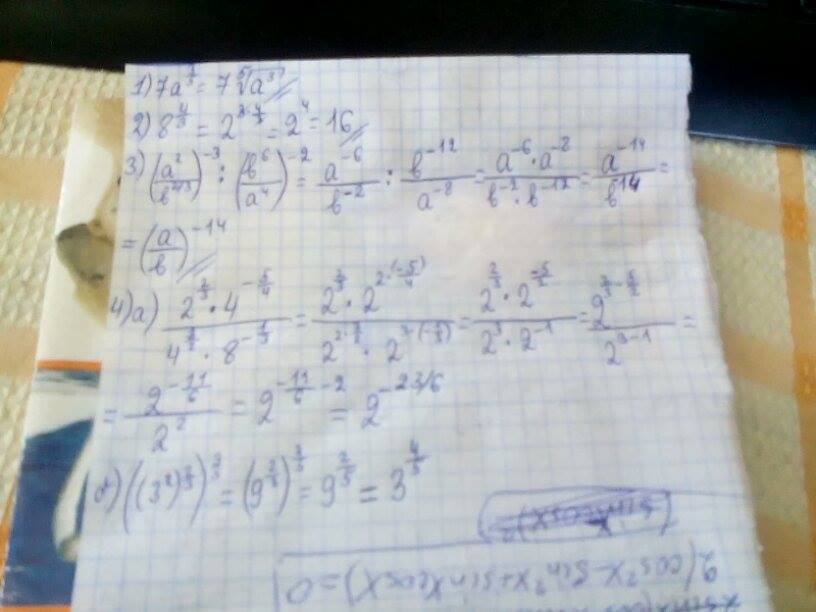 1) 7a^{3/5} = 7 ⁵√(a³)
2) 8^{4/3} = 2^{3·4/3} = 2^4 = 16
3) (a²/b^{2/3})^{-3} : (b⁶/a⁴)^{-2} = a^{-6}/b^{-2} : b^{-12}/a^{-8} = (a^{-6}·a^{-8})/(b^{-2}·b^{-12}) = a^{-14}/b^{14} =
= (a/b)^{-14}
4) а) (2^{2/3}·4^{-5/4})/(4^{3/2}·8^{-1/3}) = (2^{2/3}·2^{2·(-5/4)})/(2^{2·3/2}·2^{3·(-1/3)}) = (2^{2/3}·2^{-5/2})/(2^3·2^{-1}) = 2^{2/3-5/2}/2^{3-1} =
= 2^{-11/6}/2^2 = 2^{-11/6-2} = 2^{-23/6}
= 9^{2/5} = 3^{4/5}
2(cos²x-sin²x+sinxcosx)=0